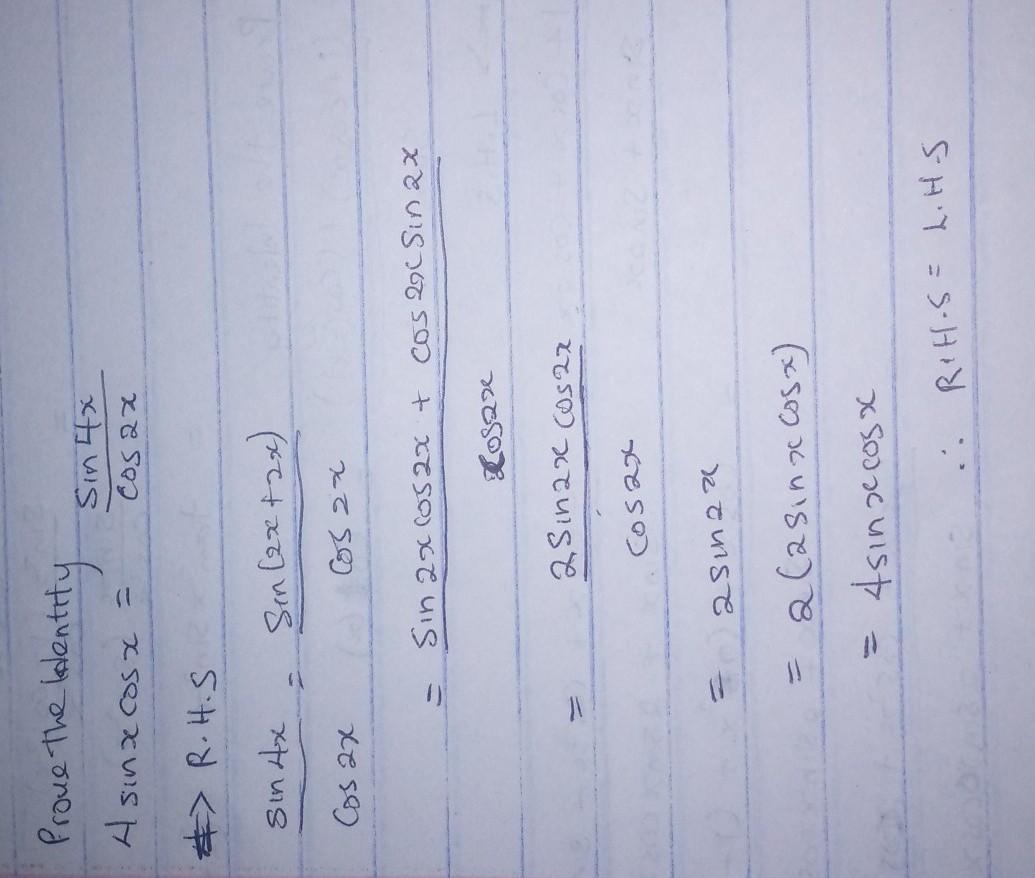 Prove the Identity
4 sin x cos x = sin 4x / cos 2x
=> R.H.S
sin 4x / cos 2x = sin(2x+2x) / cos 2x
= sin 2x cos 2x + cos 2x sin 2x / cos 2x
= 2 sin 2x cos 2x / cos 2x
= 2 sin 2x
= 2(2 sin x cos x)
= 4 sin x cos x
∴ R.H.S = L.H.S